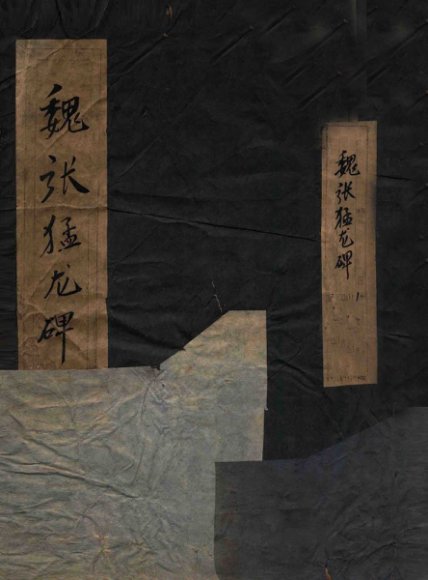 魏张猛龙碑
魏张猛龙碑